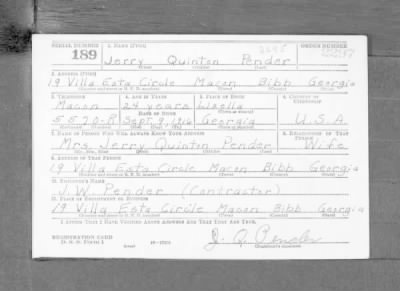 SERIAL NUMBER 1. NAME (Print) ORDER NUMBER
189 Jerry Quinton Pender
(First) (Middle) (Last)
2. ADDRESS (Print)
19 Villa Esta Circle Macon Bibb Georgia
3. TELEPHONE 4. AGE IN YEARS 5. PLACE OF BIRTH 6. COUNTRY OF CITIZENSHIP
Macon 24 years Lizella
DATE OF BIRTH
5570-R Sept 9, 1916 Georgia U.S.A.
7. NAME OF PERSON WHO WILL ALWAYS KNOW YOUR ADDRESS 8. RELATIONSHIP OF THAT PERSON
Mrs. Jerry Quinton Pender Wife
9. ADDRESS OF THAT PERSON
19 Villa Esta Circle Macon Bibb Georgia
10. EMPLOYER'S NAME
J. W. Pender (Contractor)
11. PLACE OF EMPLOYMENT OR BUSINESS
19 Villa Esta Circle Macon Bibb Georgia
I AFFIRM THAT I HAVE VERIFIED ABOVE ANSWERS AND THAT THEY ARE TRUE.
REGISTRATION CARD J. Q. Pender
D. S. S. Form 1 (Registrant's signature)